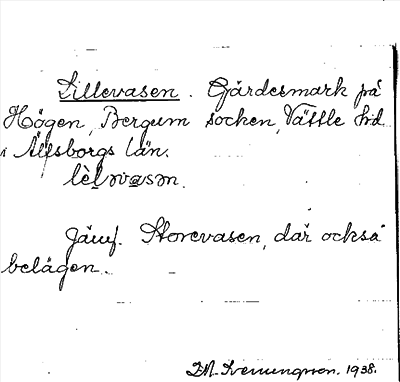 Lillevasen. Gärdesmark på
Högen, Bergum socken, Vättle hd
i Älfsborgs län.
lèlǝvasǝn.
Jämf. Storevasen, där också
belägen.
1938.